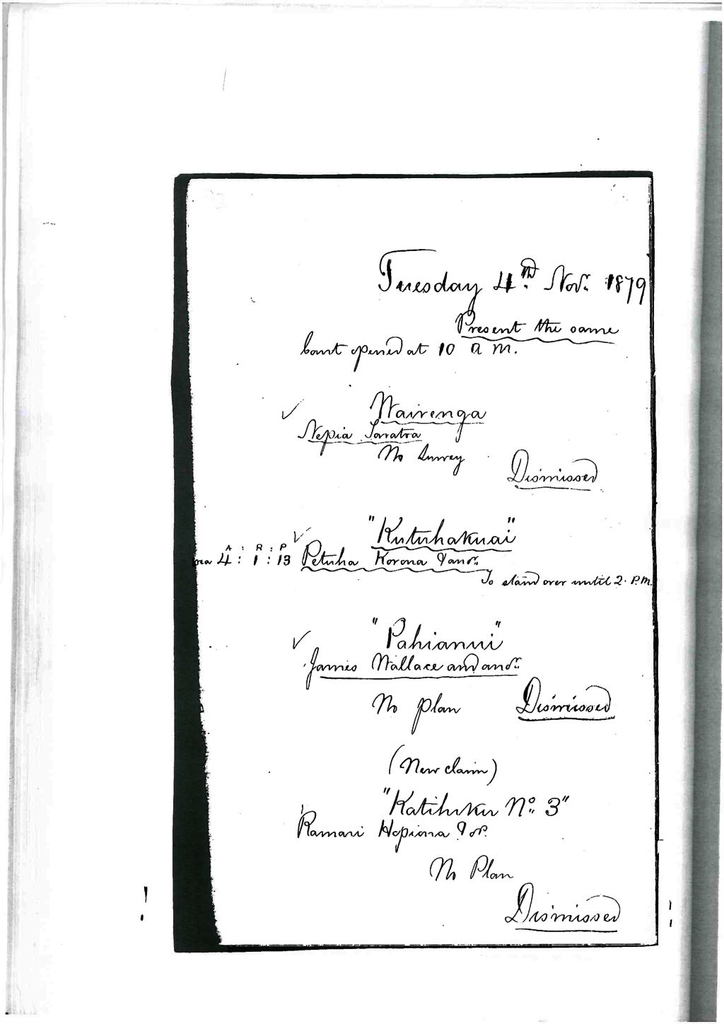 Tuesday 4th Nov: 1879
Present the same
Court opened at 10 a m.
Wairenga
Nepia
No Survey
Dismissed
"Kutuhakuai"
A : R : P
4 : 1 : 13 Petuha Korona & anor.
To stand over until 2. P.m.
"Pahianui"
James Wallace and anor.
No plan Dismissed
(New claim)
"Katihiku No. 3"
Ramari Hopiona & or.
No Plan
Dismissed